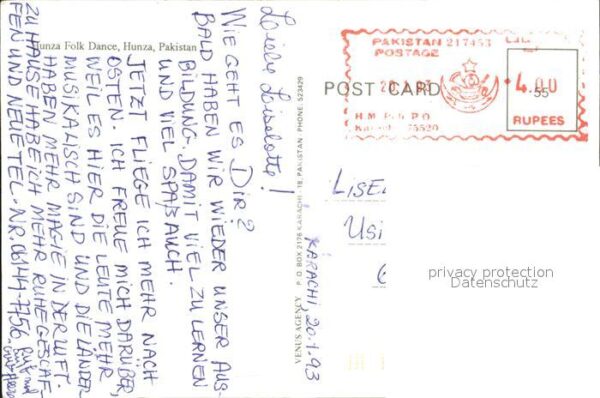 Hunza Folk Dance, Hunza, Pakistan
Liebe Liselotte!
WIE GEHT ES DIR?
BALD HABEN WIR WIEDER UNSER AUS-
BILDUNG. DAMIT VIEL ZU LERNEN
UND VIEL SPAß AUCH.
JETZT FLIEGE ICH MEHR NACH
OSTEN. ICH FREUE MICH DARÜBER,
WEIL ES HIER DIE LEUTE MEHR
MUSIKALISCH SIND UND DIE LÄNDER
HABEN MEHR MAGIE IN DER LUFT.
ZU HAUSE HABE ICH MEHR RUHE GESCHAF-
FEN UND NEUE TEL-NR. 06144-7756
VENUS AGENCY P. O. BOX 2176 KARACHI-18, PAKISTAN PHONE 523429
KARACHI, 20.1.93
POST CARD
PAKISTAN 217453
POSTAGE
4.00
55
RUPEES
75520
LISE
USI
privacy protection
Datenschutz